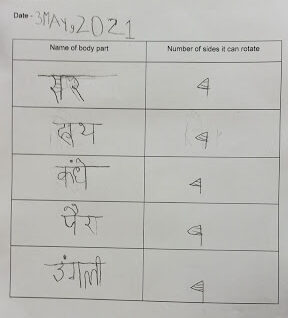 Date - 3MAY,2021
Name of body part Number of sides it can rotate
सर 4
हाथ 4
कंधे 4
पैर 4
उंगली 4